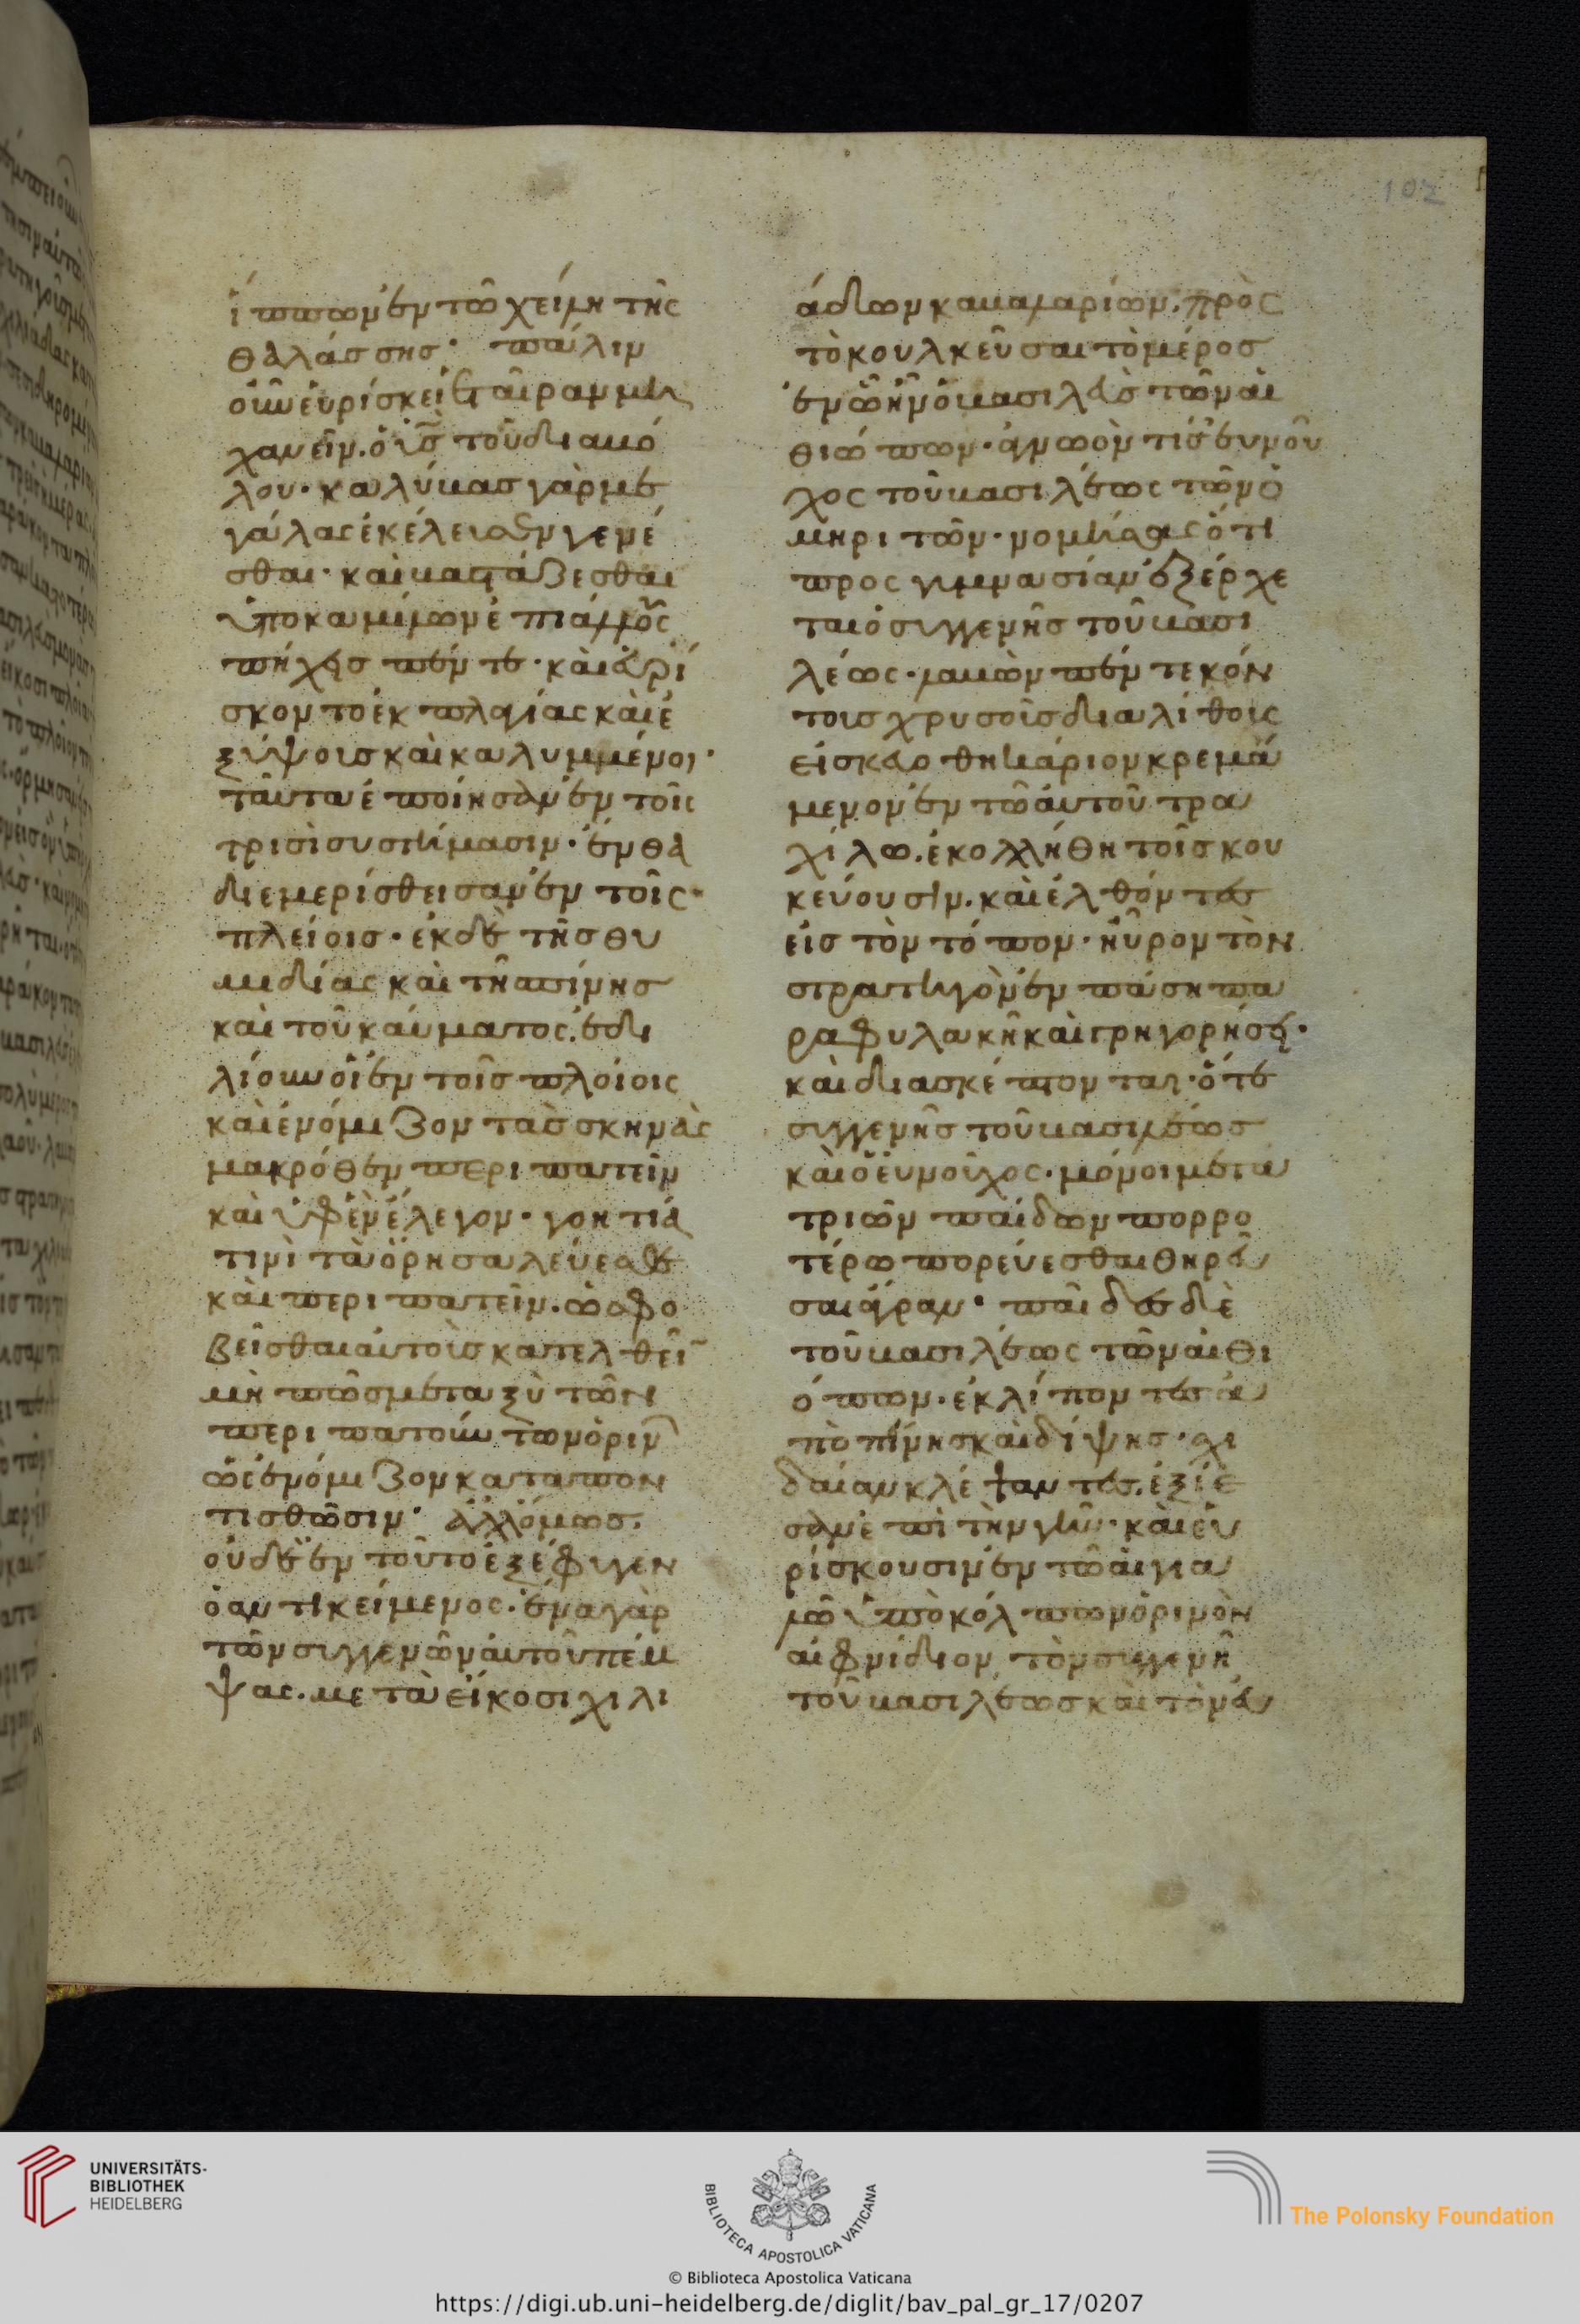 102
ἵππων ἐν τῶ χείλη τῆς
θαλάσσης· πάλιν
οὖν εὑρίσκει ἑταίραν μη
χανεῖν. ὁ υἱς τοῦ διαβό
λου· καλύβας γὰρ με
γάλας ἐκέλευσεν γενέ
σθαι· καὶ βαστάζεσθαι
ὑπο καμίμων ἐπιάμμους
πήχεις πέντε· καὶ εὑρί
σκοντο ἐκ πλαγίας καὶ ἐ
ξύψοις καὶ καλυμμένοι·
ταῦτα ἐποίησαν ἐν τοῖς
τρισὶ συστήμασιν· ἔνθα
διεμερίσθεισαν ἐν τοῖς
πλείοις· ἐκ δὲ τῆς θυ
μιδίας καὶ τῆ πίνης
καὶ τοῦ καύματος. ἐδι
λίουν οἱ ἐν τοῖς πλοίοις
καὶ ἐνόμιζον τὰς σκηνὰς
μακρόθεν περιπατεῖν
καὶ ὑφὲν ἔλεγον· γοητιά
τινὶ τὰ ὄρη σαλεύεσθε
καὶ περιπατεῖν. ὡς φο
βεῖσθαι αὐτοὶς κατελθεῖ
μὴ πῶς μεταξὺ τῶν
περιπατούντων ὀρίν
ὡς ἐνόμιζον καταπον
τισθῶσιν· ἀλλόμως.
οὐδὲ ἐν τοῦτο ἐξέφυγεν
ὁ αντικείμενος. ἕνα γὰρ
τῶν συγγενῶν αὐτοῦ πέμ
ψας. μετὰ εἴκοσι χιλι
άδων καβαλαρίων. πρὸς
τὸ κουλκεῦσαι τὸ μέρος
ἐν ὧ ἦν ὁ βασιλεὺς τῶν αἰ
θιώπων· ἄνωόν τις ἐυνοῦ
χος τοῦ βασιλέως τῶν ὁ
μηριτῶν· νομήσας ὅτι
προς γυμνασίαν ἐξέρχε
ται ὁ συγγενῆς τοῦ βασι
λέως· λαβὼν πέντε κόν
τοις χρυσοῖς διαλίθοις
εἰσκευοθηβάριον κρεμά
μενον ἐν τῶ αὐτοῦ τρα
χίλω. ἐκολλήθη τοῖς κου
κεύουσιν. καὶ ἐλθόντες
εἰς τὸν τόπον· ηὗρον τὸν
στρατηγὸν ἐν πάση πα
ραφυλακῆ καὶ γρηγορήσει·
καὶ διασκέπτονται· ὅτε
συγγενῆς τοῦ βασιλέως
καὶ ὁ ἐυνοῦχος· μόνοι μετα
τριῶν παίδων πορρο
τέρω πορεύεσθαι θηρεῦ
σαι ἄγραν· παῖδες δὲ
τοῦ βασιλέως τῶν αἰθι
όπων· ἐκλίποντες ἀ
πὸ πίνης καὶ δίψης· σχι
δαίαν κλέψαντες. ἐξίε
σαν ἐπὶ τὴν γῆν· καὶ εὑ
ρίσκουσιν ἐν τῶ αἰγια
λῶ ὑπὸ κόλπων ὀρινὸν
αἰφνίδιον τὸν συγγενῆ
τοῦ βασιλέως καὶ τὸν εὐ
UNIVERSITÄTS-
BIBLIOTHEK
HEIDELBERG
BIBLIOTECA APOSTOLICA VATICANA
The Polonsky Foundation
© Biblioteca Apostolica Vaticana
https://digi.ub.uni-heidelberg.de/diglit/bav_pal_gr_17/0207